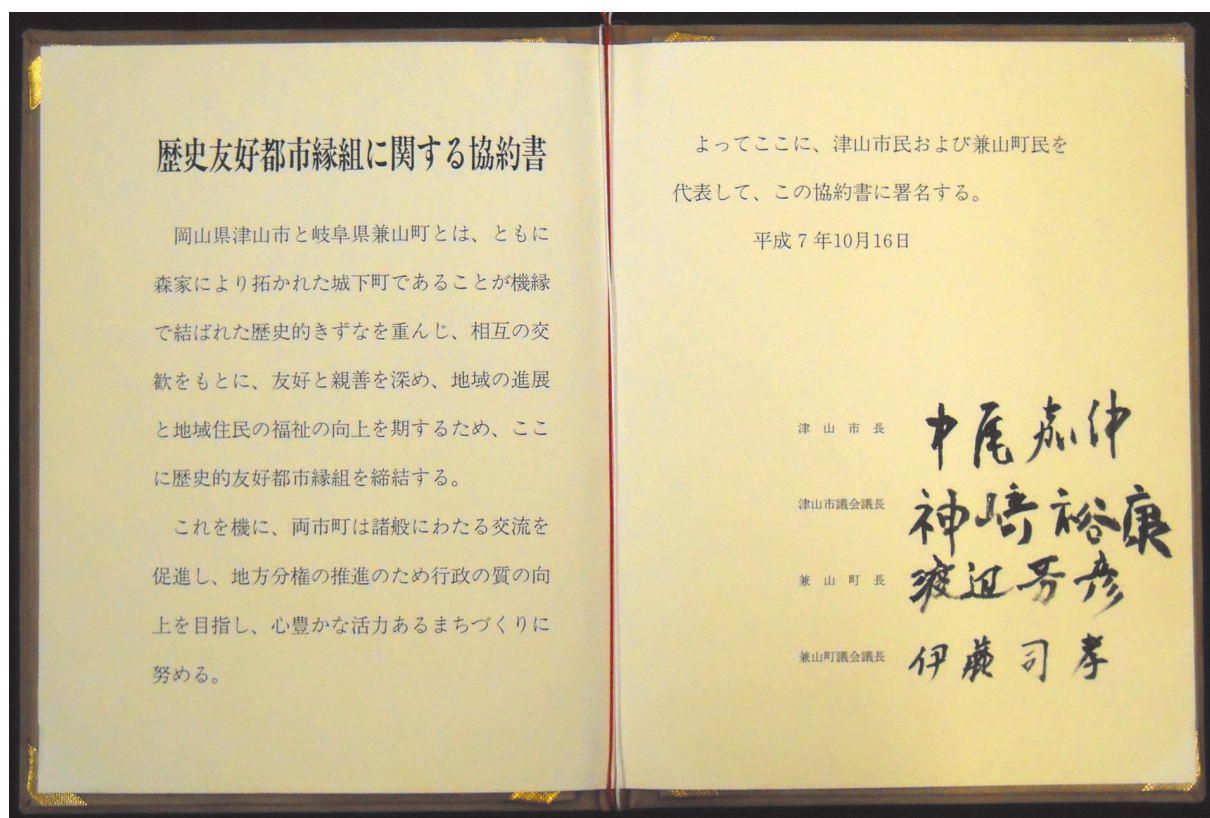 歴史友好都市縁組に関する協約書
岡山県津山市と岐阜県兼山町とは、ともに
森家により拓かれた城下町であることが機縁
で結ばれた歴史的きずなを重んじ、相互の交
歓をもとに、友好と親善を深め、地域の進展
と地域住民の福祉の向上を期するため、ここ
に歴史的友好都市縁組を締結する。
これを機に、両市町は諸般にわたる交流を
促進し、地方分権の推進のため行政の質の向
上を目指し、心豊かな活力あるまちづくりに
努める。
よってここに、津山市民および兼山町民を
代表して、この協約書に署名する。
平成7年10月16日
津山市長 中尾嘉伸
津山市議会議長 神﨑裕康
兼山町長 渡辺芳彦
兼山町議会議長 伊藤司孝